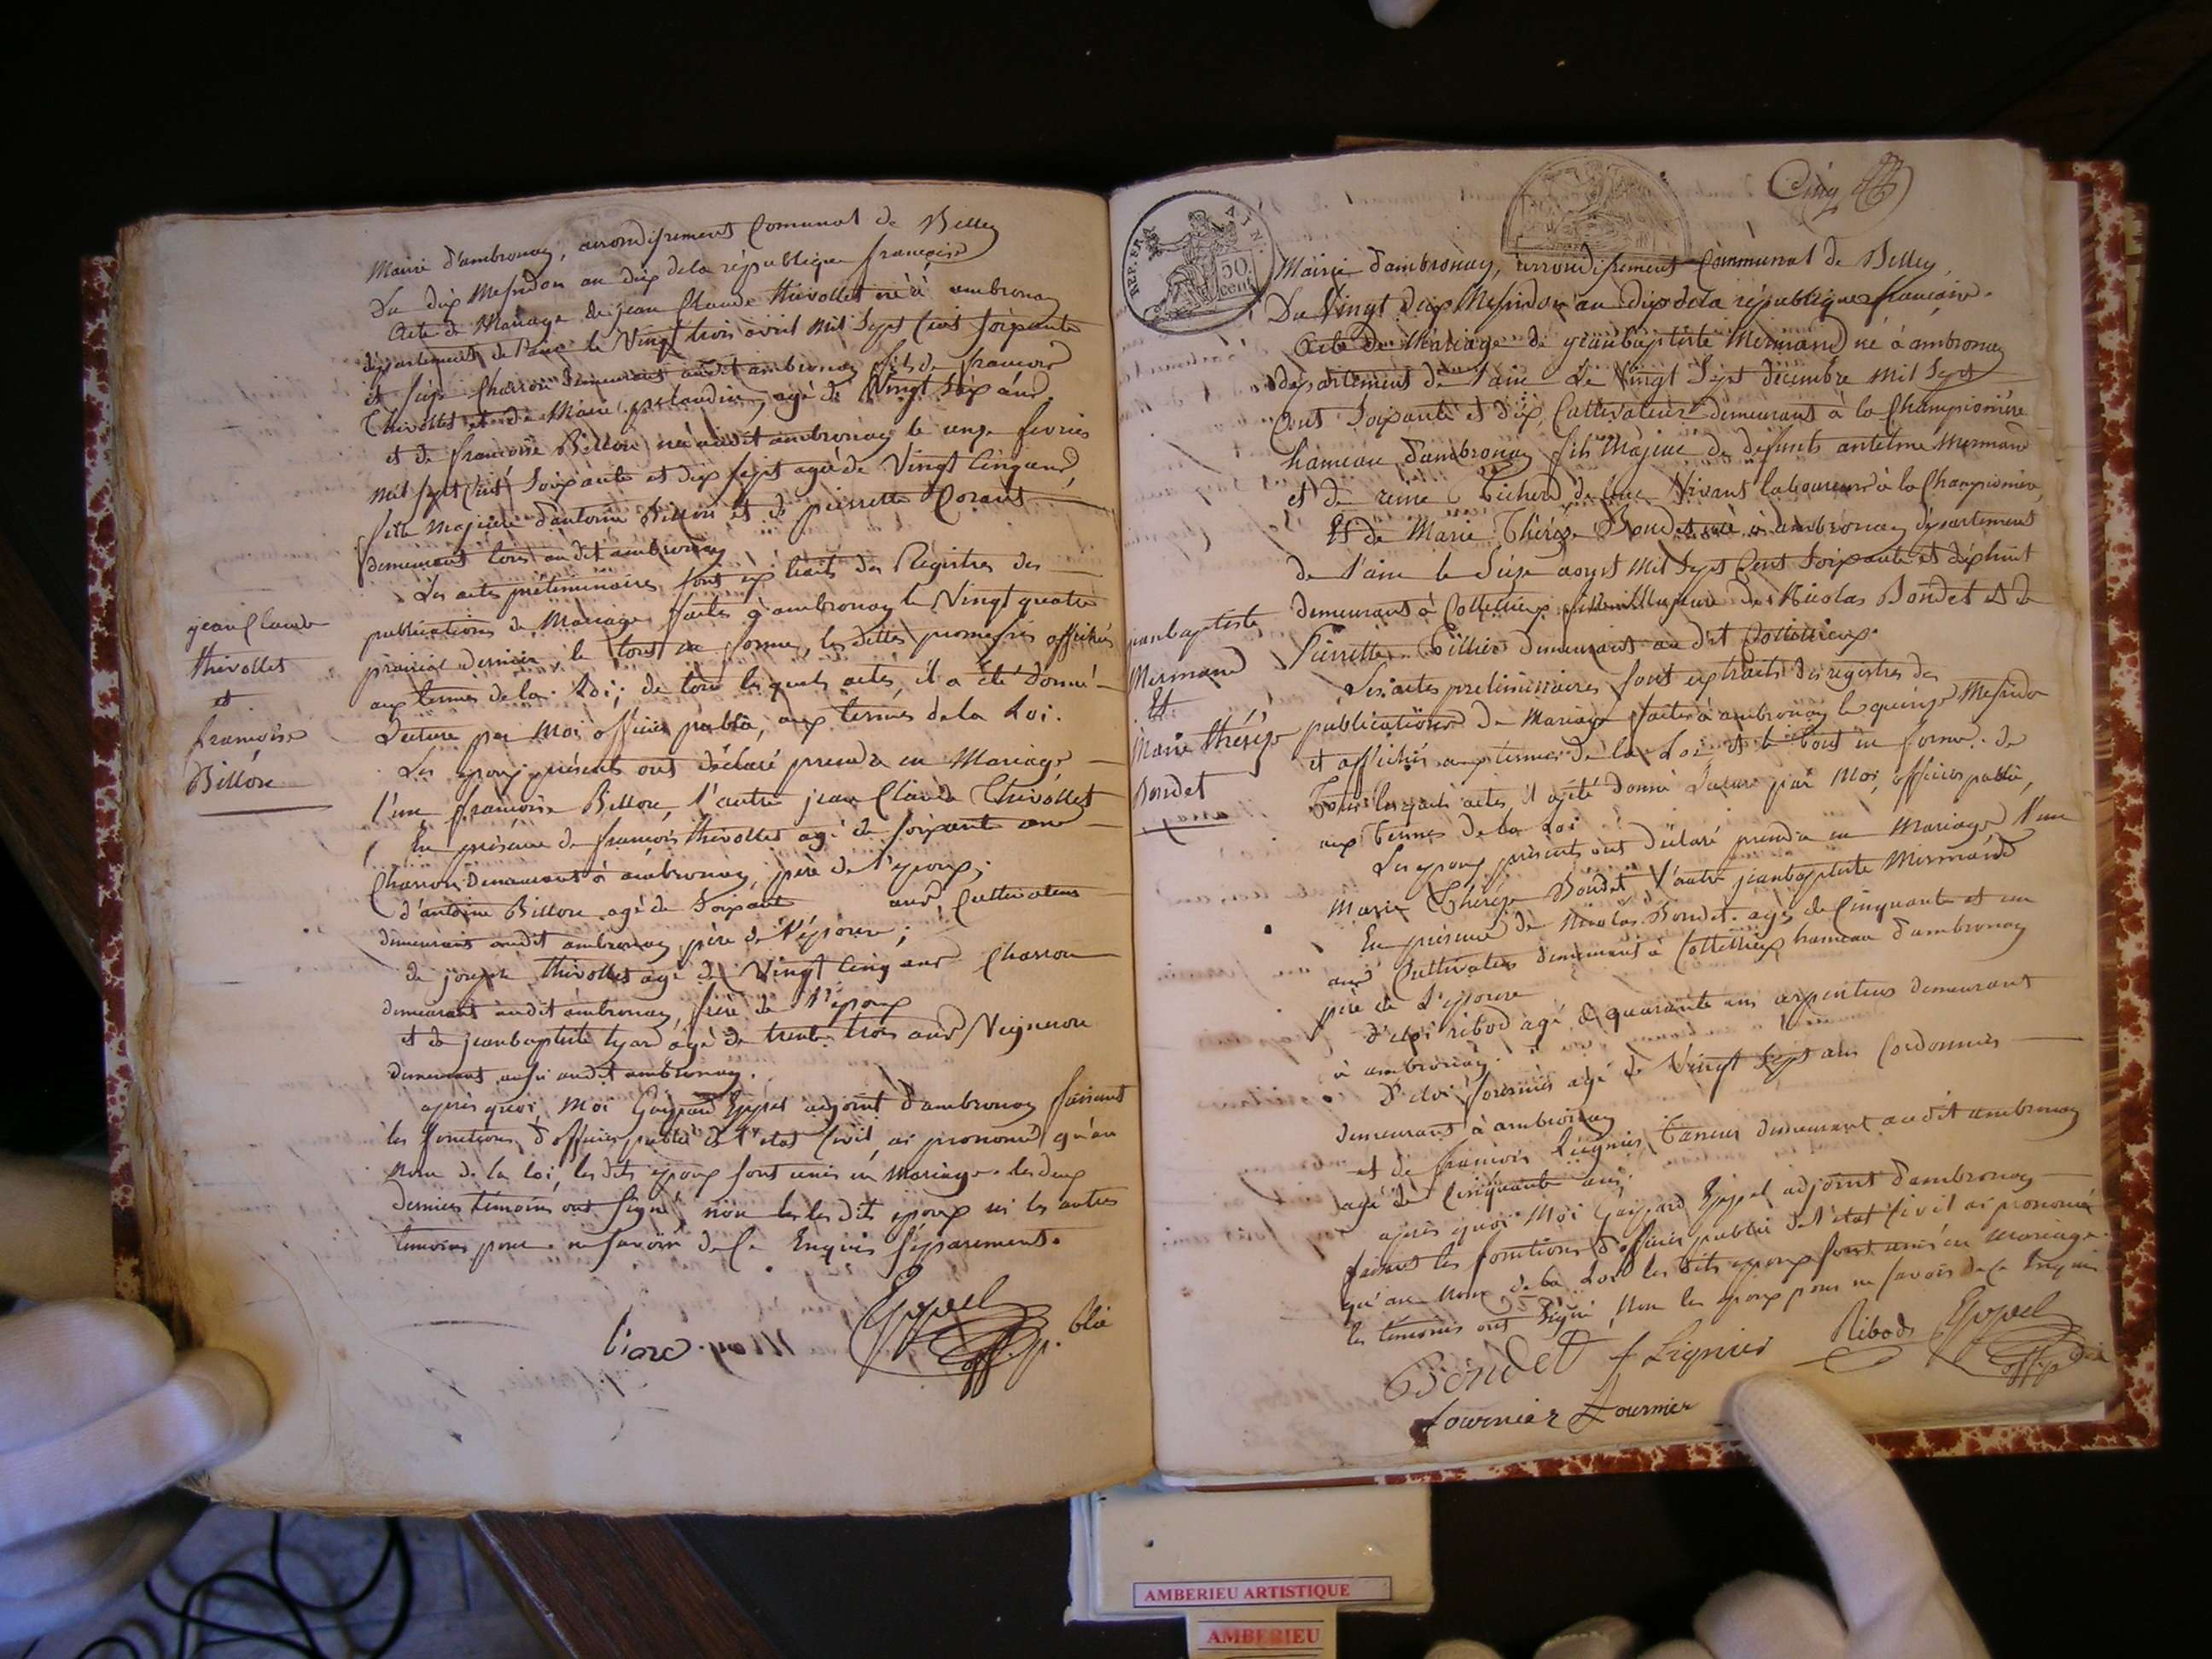 Mairie d'ambronay, arrondissement Comunal de Belley
Du dix Messidor an dix de la république françoise
Acte de Mariage de jean Claude thivollet né à ambronay
département de l'ain le Vingt trois avril mil Sept Cent Soixante
et Seize Charron demeurant audit ambronay fils de francois
Thivollet et de Marie agé de Vingt Six ans
et de francoise Billon née audit ambronay le onze fevrier
mil sept Cent Soixante et dix sept agée de Vingt Cinq ans
fille majeure d'antoine Billon et de pierrette Corant
demeurant tous audit ambronay
Les actes préliminaires sont extraits des Registres des
publications de Mariage faites à ambronay le Vingt quatre
prairial dernier, le tout en forme, les dittes promesses affichées
aux termes de la Loi; de tous lesquels actes, il a été donné
Lecture par Moi officier public, aux termes de la Loi.
Les epoux présents ont déclaré prendre en Mariage
l'un françoise Billon, l'autre jean Claude Thivollet
En présence de francois thivollet agé de soixante ans
Charron demeurant à ambronay, père de l'epoux;
d'antoine Billon agé de Soixante ans, Cultivateur
demeurant audit ambronay père de l'épouse;
de joseph thivollet agé de Vingt Cinq ans Charron
demeurant audit ambronay, frère de l'époux
et de jeanbaptiste agé de trente trois ans Vigneron
demeurant aussi audit ambronay.
après quoi, moi Gaspard Eppel adjoint d'ambronay faisant
les fonctions d'officier public de l'etat Civil ai prononcé qu'au
nom de la loi, les dits epoux sont unis en mariage. les deux
derniers témoins ont signé, non les dits epoux ni les autres
temoins pour ne savoir de Ce Enquis séparement.
jean Claude
thivollet
et
francoise
Billon
Eppel
off. p. blic
Cinq
REP. FRA.
AIN.
50.
cent
Mairie d'ambronay, arrondissement Communal de Belley,
Du Vingt Six Messidor an dix de la république francaise.
Acte de Mariage de jeanbaptiste Mermand né à ambronay
département de l'ain le Vingt Sept decembre mil Sept
Cent Soixante et dix, Cultivateur demeurant à la Championière
hameau d'ambronay fils Majeur de defunts antelme Mermand
et de reine de leur Vivant laboureurs à la Championière,
Et de Marie Thérèze Bondet née à ambronay département
de l'ain le Seize aoust mil Sept Cent Soixante et dix huit
demeurant à Cottellieux fille Majeure de Nicolas Bondet et de
Pierrette Tillier demeurant au dit Cottellieux.
Les actes preliminaires sont extraits des registres des
publications de Mariage faites à ambronay le quinze Messidor
et affichés aux termes de la Loi et le tout en forme. de
Tous lesquels actes, il a été donné Lecture par Moi, officier public,
aux termes de la Loi
Les epoux présents ont déclaré prendre en mariage l'un
Marie Thérèze Bondet, l'autre jeanbaptiste Mermand
En présence de Nicolas Bondet agé de Cinquante et un
ans Cultivateur demeurant à Cottellieux hameau d'ambronay
père de L'epouse
ribod agé de quarante ans arpenteur demeurant
à ambronay.
fournier agé de Vingt Sept ans Cordonnier
demeurant à ambronay
et de francois Lignier, Taneur demeurant audit ambronay
agé de Cinquante ans;
après quoi Moi Gaspard Eppel adjoint d'ambronay
faisant les fonctions d'officier public de l'etat Civil ai prononcé
qu'au Nom de la Loi les dits epoux sont unis en mariage.
les témoins ont signé, non les epoux pour ne savoir de Ce Enquis
jeanbaptiste
Mermand
Et
Marie thérèze
Bondet
Bondet f Lignier Ribod Eppel
off. p. blic
fournier Fournier
AMBERIEU ARTISTIQUE
AMBERIEU